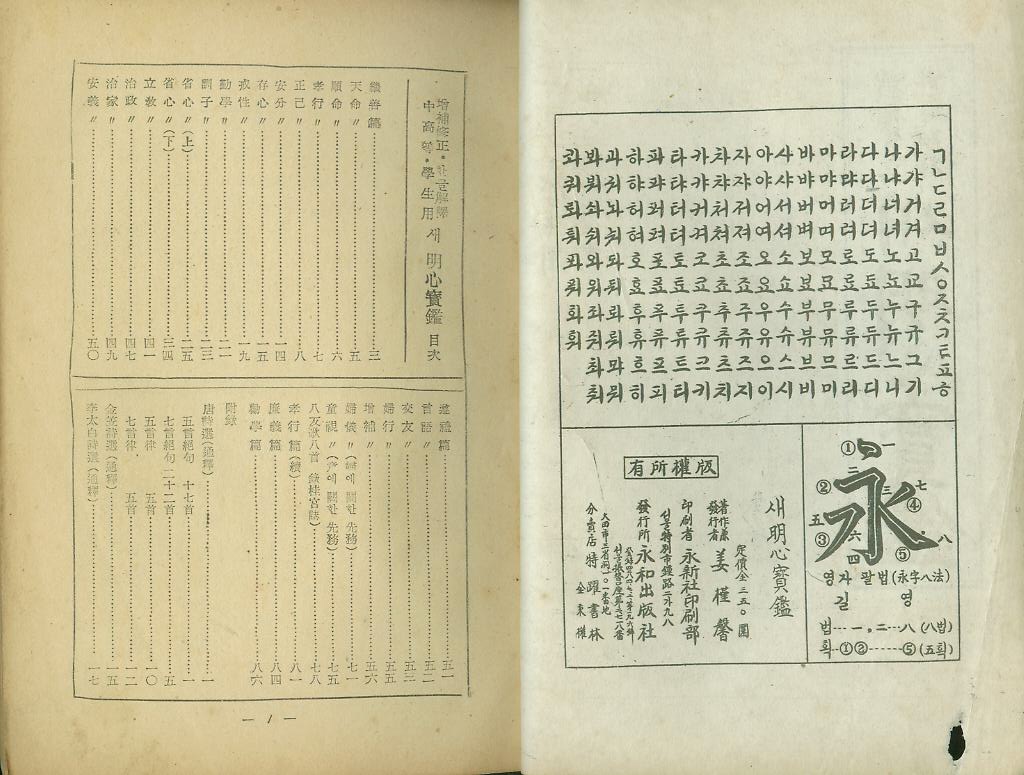 增補修正·한글解釋
中高等·學生用 새 明心寶鑑 目次
繼善篇 三
天命〃 五
順命〃 六
孝行〃 七
正己〃 八
安分〃 一四
存心〃 一五
戒性〃 一九
勸學〃 二一
訓子〃 二三
省心〃(上) 二五
省心〃(下) 三四
立敎〃 四一
治政〃 四七
治家〃 四九
安義〃 五〇
遵禮篇 五一
言語〃 五二
交友〃 五三
婦行〃 五五
增補〃 五六
婦儀〃 七一
童規〃 七五
八反歌八首 七八
孝行篇(續) 八一
廉義篇 八四
勸學篇 八六
附錄
唐詩選(通釋) 一
五言絕句 十七首 一
七言絕句 二十二首 五
五言律 五首 一〇
七言律 五首 一二
金笠詩選(通釋) 一五
李太白詩選(通釋) 一七
— 1 —
ㄱㄴㄷㄹㅁㅂㅅㅇㅈㅊㅋㅌㅍㅎ
가갸거겨고교구규그기
나냐너녀노뇨누뉴느니
다댜더뎌도됴두듀드디
라랴러려로료루류르리
마먀머며모묘무뮤므미
바뱌버벼보뵤부뷰브비
사샤서셔소쇼수슈스시
아야어여오요우유으이
자쟈저져조죠주쥬즈지
차챠처쳐초쵸추츄츠치
카캬커켜코쿄쿠큐크키
타탸터텨토툐투튜트티
파퍄퍼펴포표푸퓨프피
하햐허혀호효후휴흐히
永
一 二 三 四 五 六 七 八
① ② ③ ④ ⑤
영자팔법(永字八法)
길 영
법…一.二…八(八법)
획…①②……⑤(五획)
版權所有
새 明心寶鑑
定價金 三五〇圜
著作兼
發行者 姜槿馨
印刷者 永新社印刷部
서울特別市鍾路二가九八
發行所 永和出版社
分賣店 特躍書林